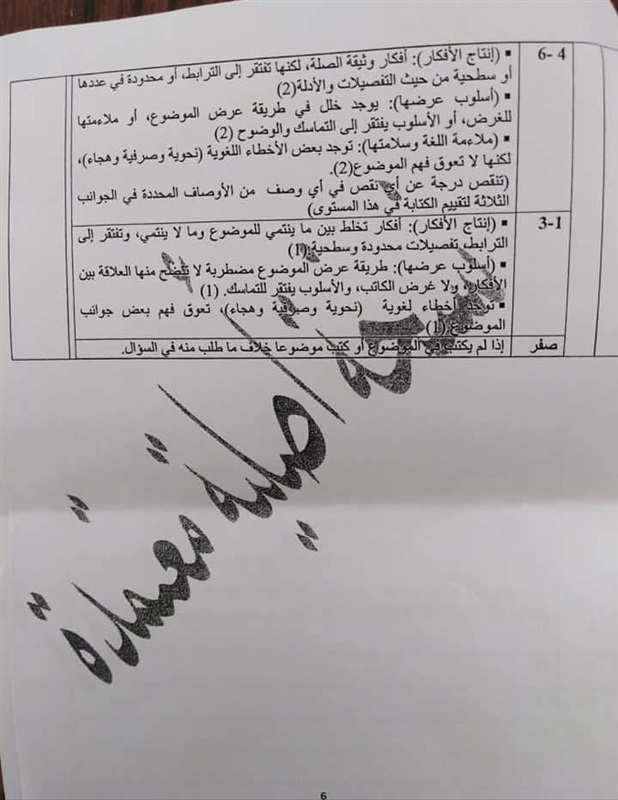 4 -6
▪ (إنتاج الأفكار): أفكار وثيقة الصلة، لكنها تفتقر إلى الترابط، أو محدودة في عددها
أو سطحية من حيث التفصيلات والأدلة(2)
▪ (أسلوب عرضها): يوجد خلل في طريقة عرض الموضوع، أو ملاءمتها
للغرض، أو الأسلوب يفتقر إلى التماسك والوضوح (2)
▪ (ملاءمة اللغة وسلامتها): توجد بعض الأخطاء اللغوية (نحوية وصرفية وهجاء)،
لكنها لا تعوق فهم الموضوع(2).
(تنقص درجة عن أي نقص في أي وصف من الأوصاف المحددة في الجوانب
الثلاثة لتقييم الكتابة في هذا المستوى)
3-1
▪ (إنتاج الأفكار): أفكار تخلط بين ما ينتمي للموضوع وما لا ينتمي، وتفتقر إلى
الترابط، تفصيلات محدودة وسطحية.(1)
▪ (أسلوب عرضها): طريقة عرض الموضوع مضطربة لا تتضح منها العلاقة بين
الأفكار، ولا غرض الكاتب، والأسلوب يفتقر للتماسك. (1)
▪ توجد أخطاء لغوية (نحوية وصرفية وهجاء)، تعوق فهم بعض جوانب
الموضوع.(1)
صفر
إذا لم يكتب في الموضوع أو كتب موضوعا خلاف ما طلب منه في السؤال.
نسخة أصلية معتمدة
6